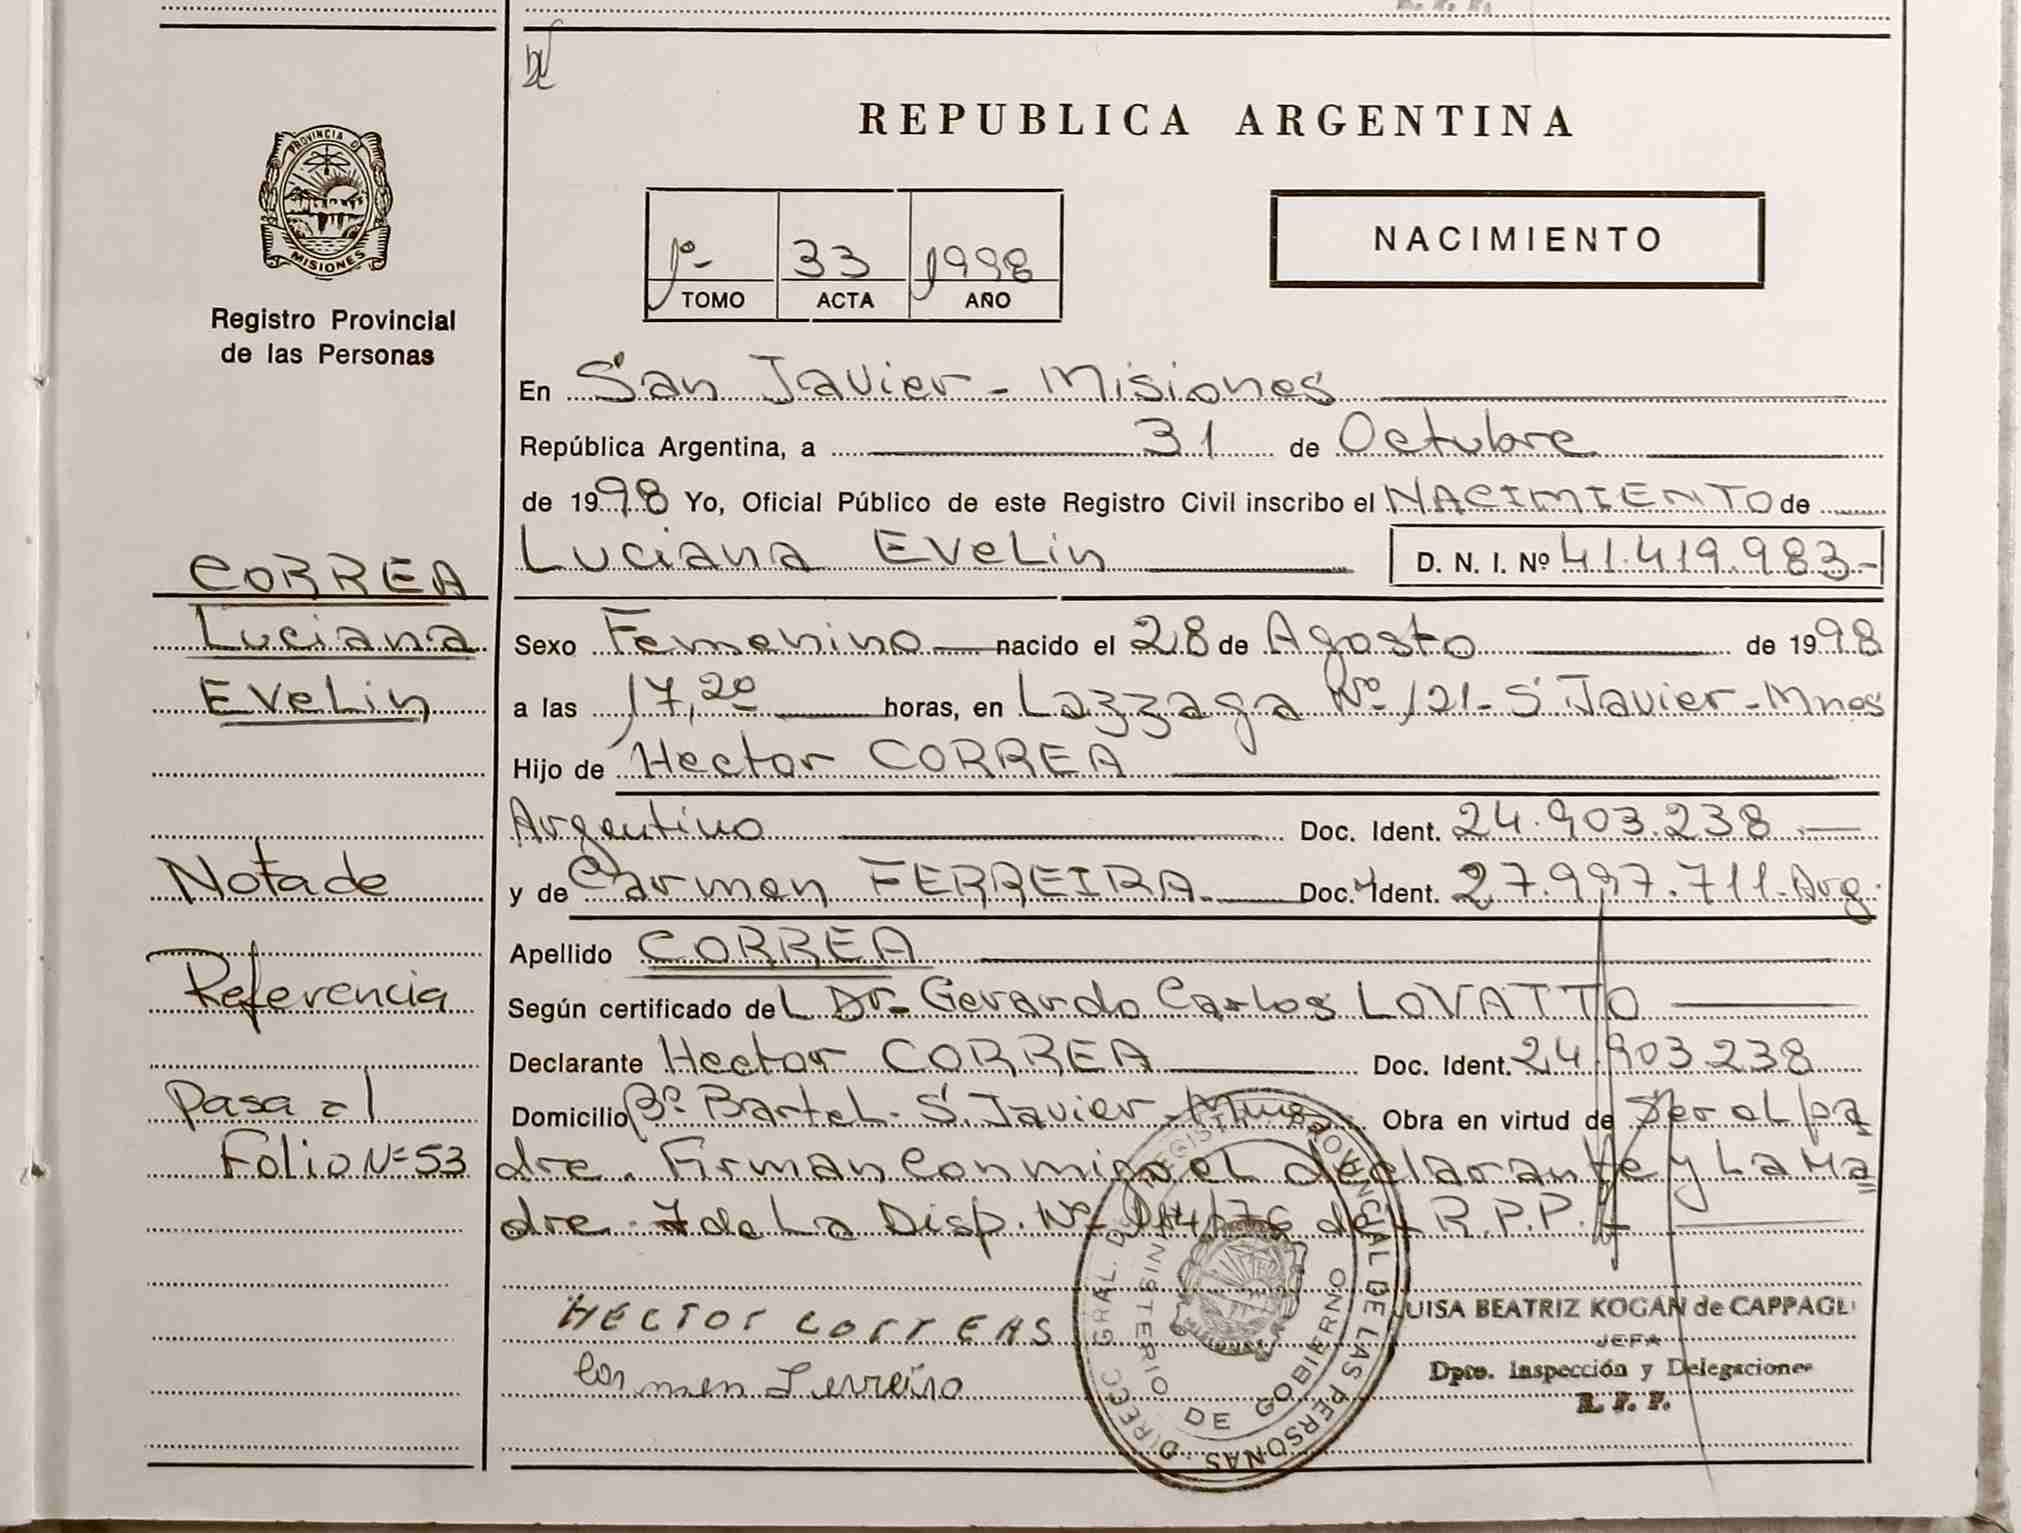 REPUBLICA ARGENTINA
PROVINCIA D
MISIONES
Registro Provincial
de las Personas
1º- 33 1998
TOMO ACTA AÑO
NACIMIENTO
En San Javier - Misiones
República Argentina, a 31 de Octubre
de 1998 Yo, Oficial Público de este Registro Civil inscribo el NACIMIENTO de
Luciana EveLin D. N. I. Nº 41.419.983-
CORREA
Luciana
EveLin
Sexo Femenino nacido el 28 de Agosto de 1998
a las 17,20 horas, en Lazzaga Nº 121- S. Javier - Mnes
Hijo de Hector CORREA
Argentino Doc. Ident. 24.903.238 -
y de Carmen FERREIRA Doc. Ident. 27.997.711- Arg.
Apellido CORREA
Según certificado de L Dr. Gerardo Carlos LOVATTO
Declarante Hector CORREA Doc. Ident. 24.903.238
Domicilio Bº Bartel - S. Javier - Obra en virtud de Ser el pa
dre. Firman Conmigo el declarante y La Ma
dre. de La Disp. Nº R.P.P.
Nota de
Referencia
Pasa al
Folio Nº 53
HECTOr CorrEAS
Carmen Ferreira
DIREC. GRAL. DEL REGISTR. PROVINCIAL DE LAS PERSONAS
MINISTERIO DE GOBIERNO
UISA BEATRIZ KOGAN de CAPPAGLI
JEFA
Dpto. Inspección y Delegaciones
R. P. P.